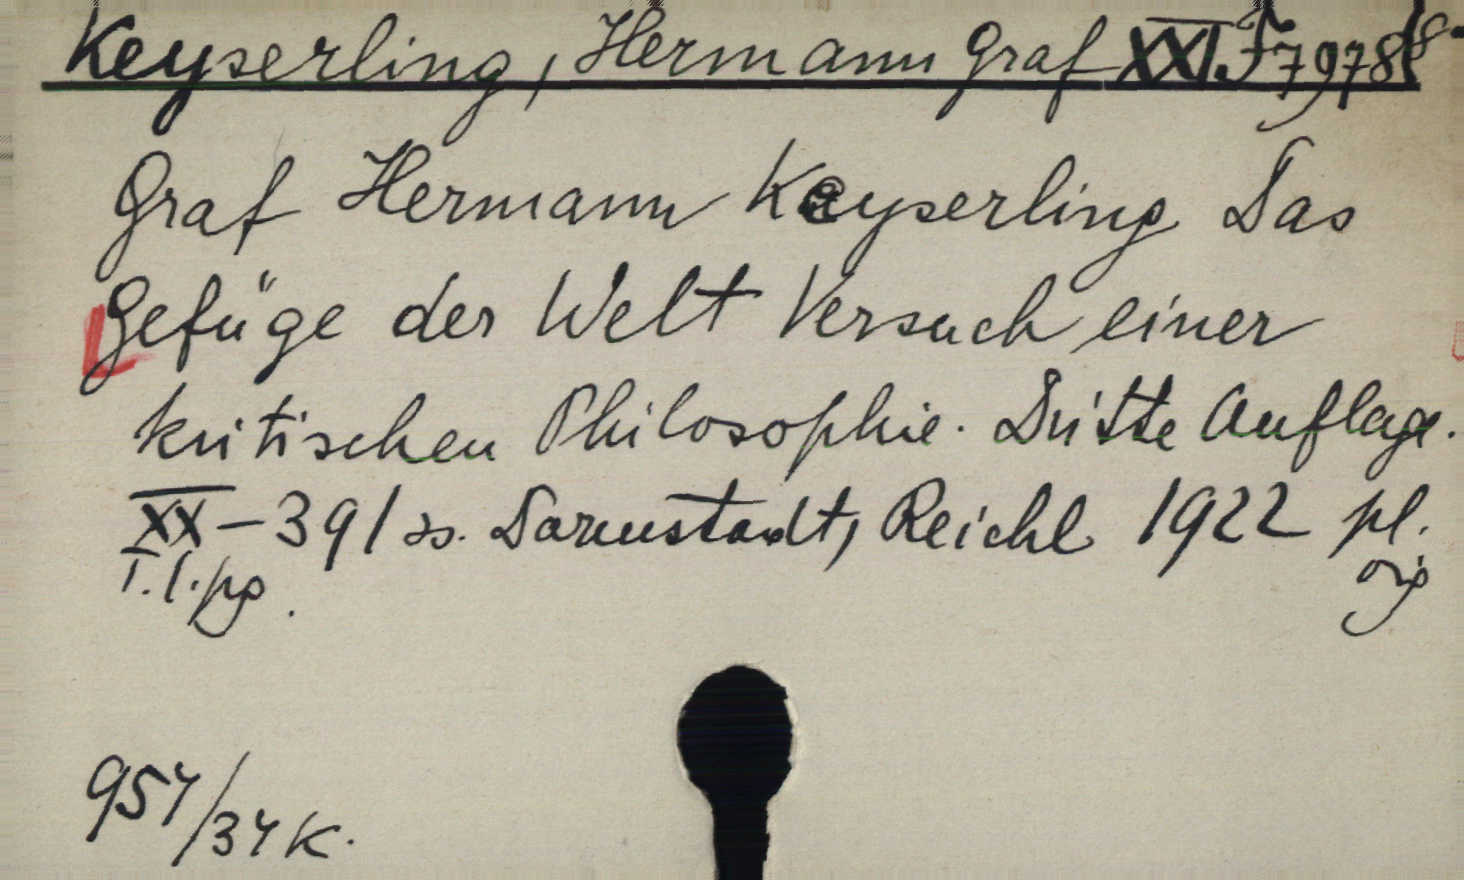 Keyserling, Hermann Graf XXI.F7978 8°
Graf Hermann Keyserling Das
Gefüge der Welt Versuch einer
kritischen Philosophie. Dritte Auflage.
XX-391 ss. Darmstadt, Reichl 1922 pl.
T.l.pg. orig
954/34 K.